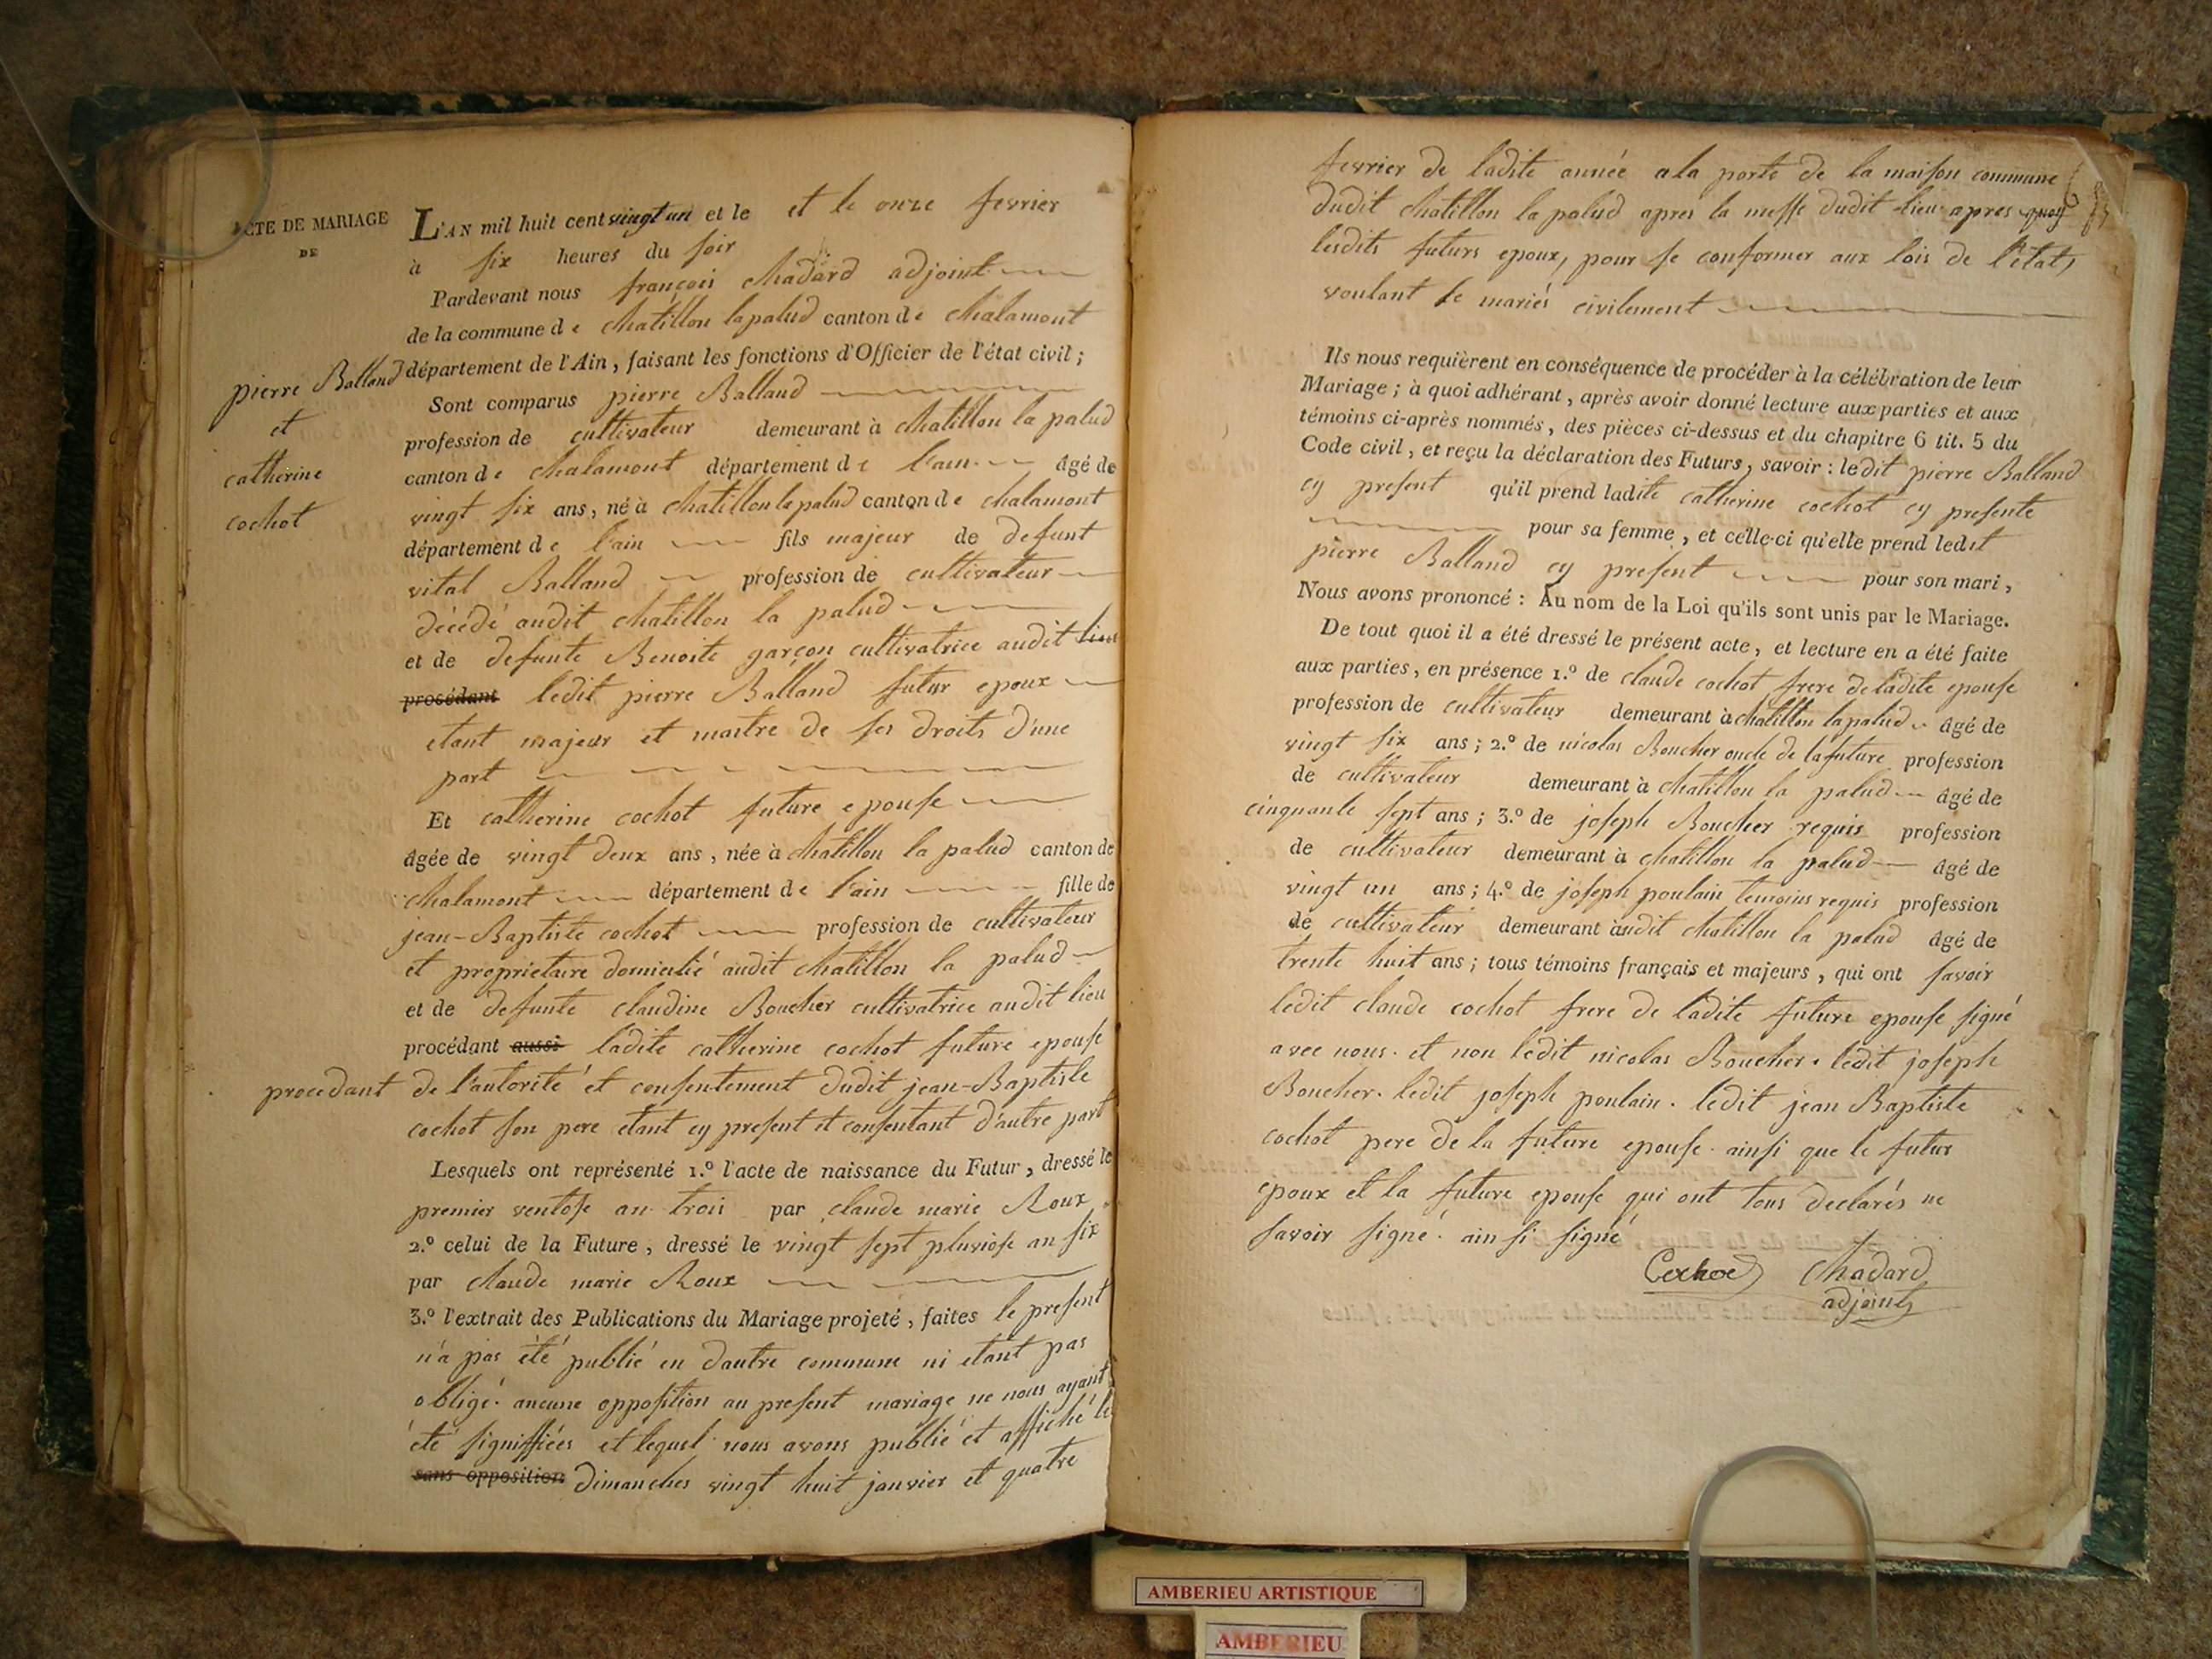 ACTE DE MARIAGE
DE
pierre Balland
et
catherine
cochot
procedant
L'AN mil huit cent vingt un et le et le onze fevrier
à six heures du soir
Pardevant nous françois chadard adjoint
de la commune de chatillon lapalud canton de chalamont
département de l'Ain, faisant les fonctions d'Officier de l'état civil;
Sont comparus pierre Balland
profession de cultivateur demeurant à chatillon la palud
canton de chalamont département de l'ain âgé de
vingt six ans, né à chatillon la palud canton de chalamont
département de l'ain fils majeur de defunt
vital Balland profession de cultivateur
décédé audit chatillon la palud
et de defunte Benoite garçon cultivatrice audit lieu
procédant ledit pierre Balland futur epoux
etant majeur et maitre de ses droits d'une
part
Et catherine cochot future epouse
âgée de vingt deux ans, née à chatillon la palud canton de
chalamont département de l'ain fille de
jean-Baptiste cochot profession de cultivateur
et proprietaire domicilié audit chatillon la palud
et de defunte claudine Boucher cultivatrice audit lieu
procédant aussi ladite catherine cochot future epouse
de l'autorité et consentement dudit jean-Baptiste
cochot son pere etant cy present et consentant d'autre part
Lesquels ont représenté 1.º l'acte de naissance du Futur, dressé le
premier ventose an trois par claude marie Roux
2.º celui de la Future, dressé le vingt sept pluviose an six
par claude marie Roux
3.º l'extrait des Publications du Mariage projeté, faites le present
n'a pas été publié en dautre commune ni etant pas
obligé. aucune opposition au present mariage ne nous ayant
été signiffiées et lequel nous avons publié et affiché les
sans opposition dimanches vingt huit janvier et quatre
fevrier de ladite année a la porte de la maison commune
dudit chatillon la palud apres la messe dudit lieu apres quoy
lesdits futurs epoux, pour se conformer aux lois de l'état,
voulant se mariés civilement
Ils nous requièrent en conséquence de procéder à la célébration de leur
Mariage; à quoi adhérant, après avoir donné lecture aux parties et aux
témoins ci-après nommés, des pièces ci-dessus et du chapitre 6 tit. 5 du
Code civil, et reçu la déclaration des Futurs, savoir: ledit pierre Balland
cy present qu'il prend ladite catherine cochot cy presente
pour sa femme, et celle-ci qu'elle prend ledit
pierre Balland cy present pour son mari,
Nous avons prononcé: Au nom de la Loi qu'ils sont unis par le Mariage.
De tout quoi il a été dressé le présent acte, et lecture en a été faite
aux parties, en présence 1.º de claude cochot frere de ladite epouse
profession de cultivateur demeurant à chatillon lapalud âgé de
vingt six ans; 2.º de nicolas Boucher oncle de la future profession
de cultivateur demeurant à chatillon la palud âgé de
cinquante sept ans; 3.º de joseph Boucher requis profession
de cultivateur demeurant à chatillon la palud âgé de
vingt un ans; 4.º de joseph poulain temoins requis profession
de cultivateur demeurant àudit chatillon la palud âgé de
trente huit ans; tous témoins français et majeurs, qui ont savoir
ledit claude cochot frere de ladite future epouse signé
avec nous. et non ledit nicolas Boucher. ledit joseph
Boucher. ledit joseph poulain. ledit jean Baptiste
cochot pere de la future epouse. ainsi que le futur
epoux et la future epouse qui ont tous declarés ne
savoir signé. ainsi signé
Cochot chadard
adjoint
AMBERIEU ARTISTIQUE
AMBERIEU